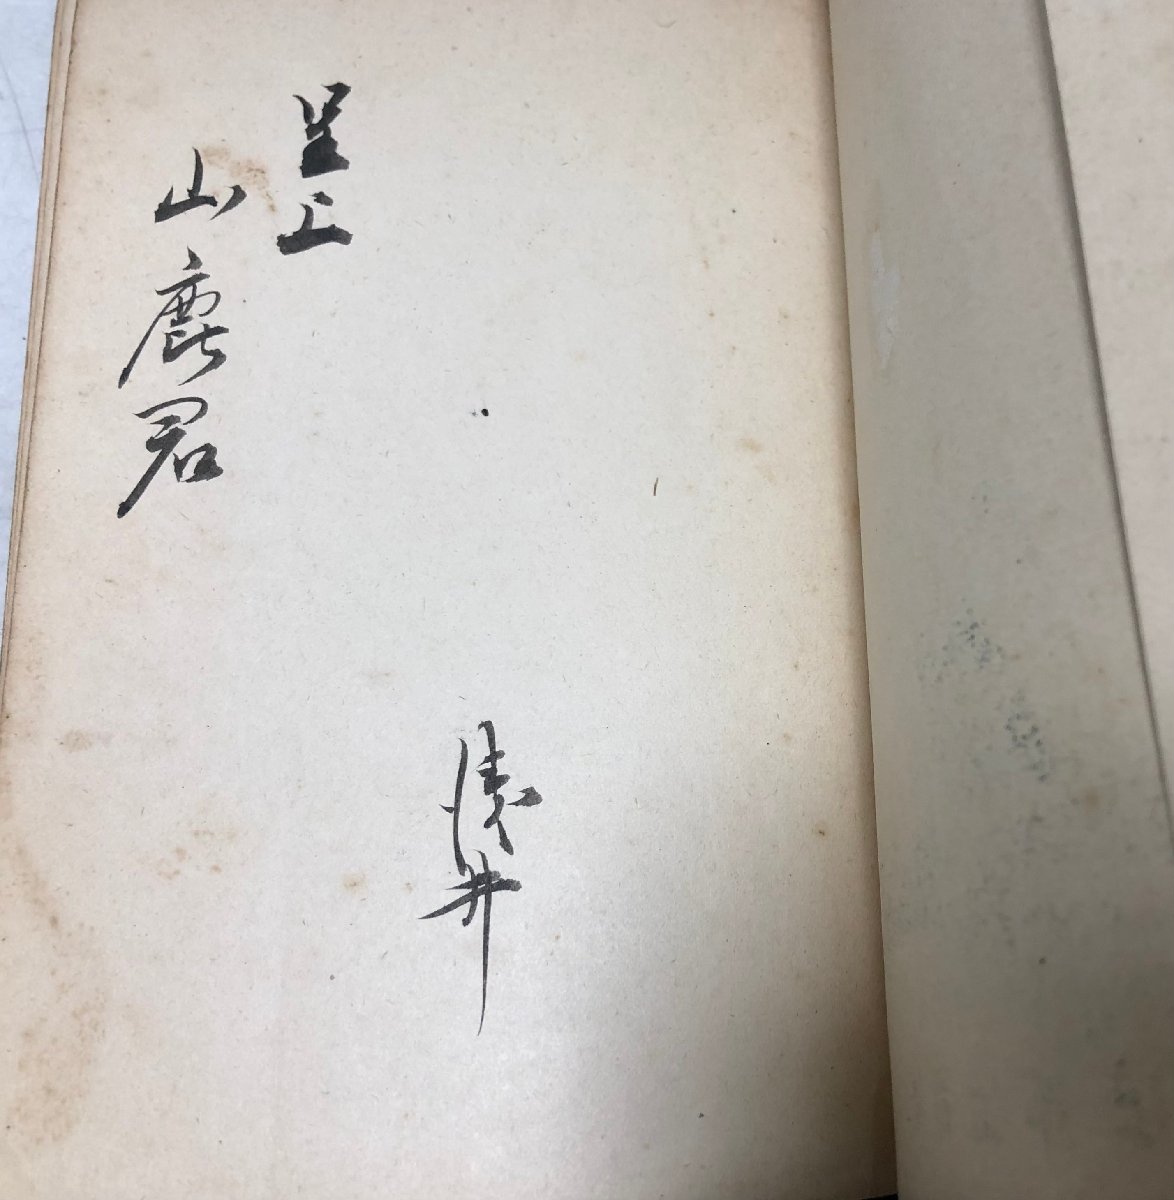 浅井
呈上
山鹿君